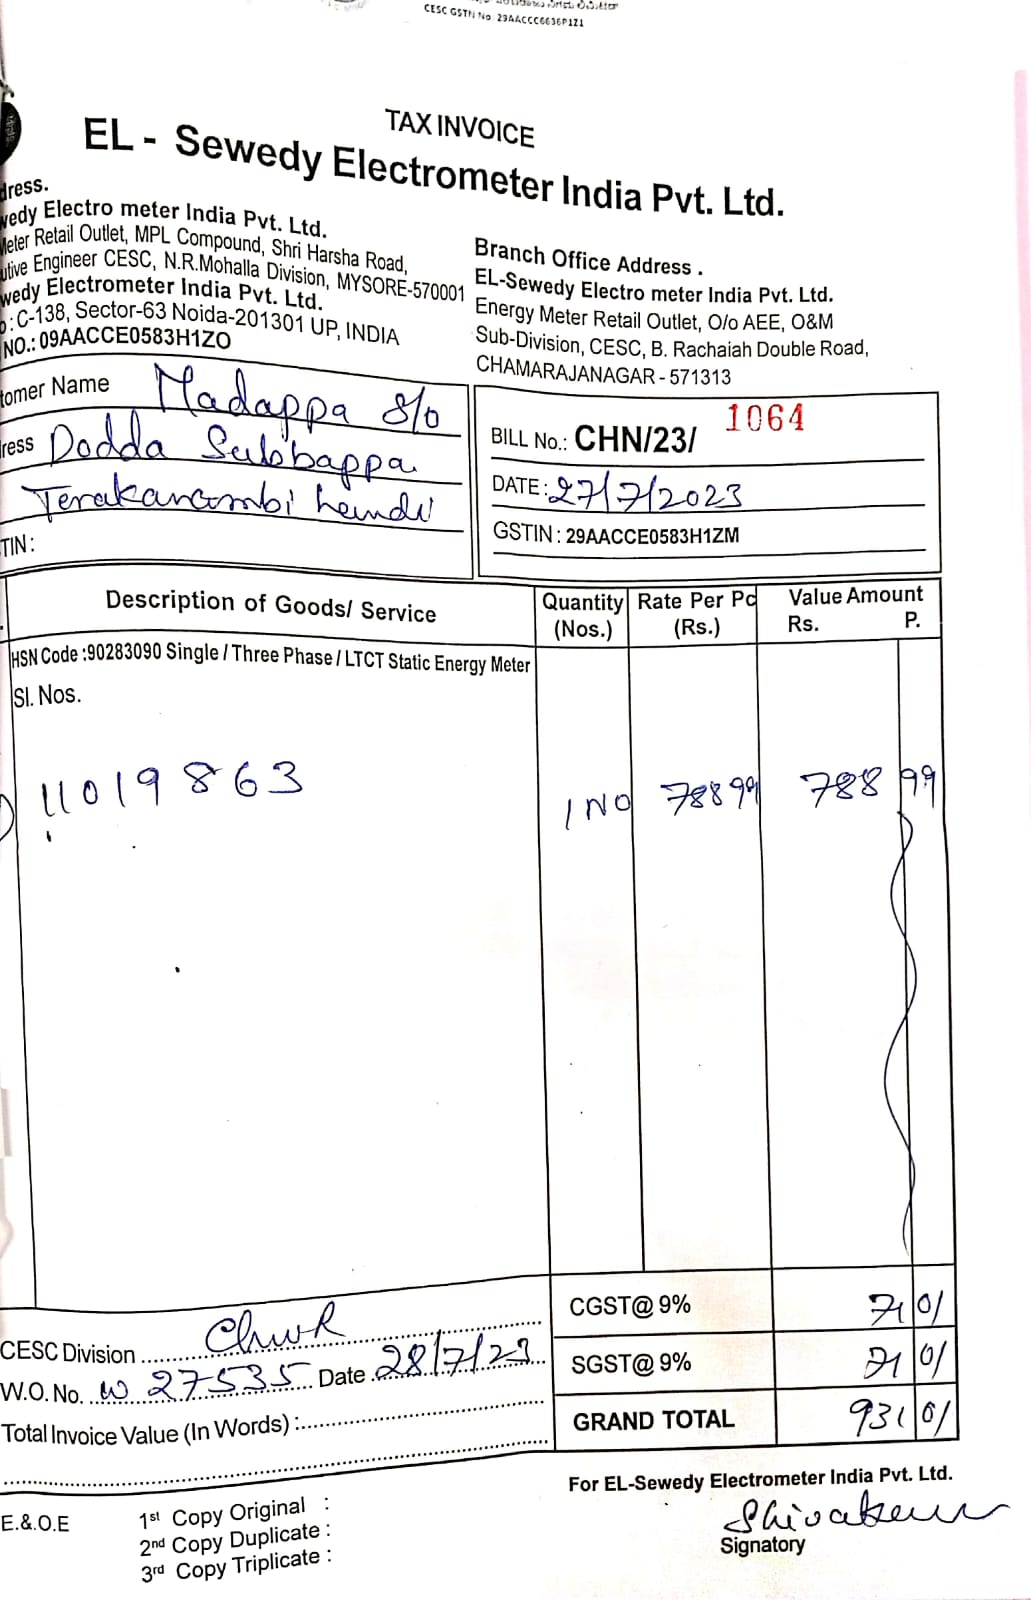 CESC GSTN No: 29AACCC6636P1Z1
TAX INVOICE
EL - Sewedy Electrometer India Pvt. Ltd.
dress.
wedy Electro meter India Pvt. Ltd.
Meter Retail Outlet, MPL Compound, Shri Harsha Road,
utive Engineer CESC, N.R.Mohalla Division, MYSORE-570001
wedy Electrometer India Pvt. Ltd.
: C-138, Sector-63 Noida-201301 UP, INDIA
NO.: 09AACCE0583H1ZO
Branch Office Address .
EL-Sewedy Electro meter India Pvt. Ltd.
Energy Meter Retail Outlet, O/o AEE, O&M
Sub-Division, CESC, B. Rachaiah Double Road,
CHAMARAJANAGAR - 571313
tomer Name Madappa S/o
ress Dodda Subbappa
Terakanambi
TIN :
BILL No.: CHN/23/ 1064
DATE : 27/7/2023
GSTIN : 29AACCE0583H1ZM
Description of Goods/ Service Quantity (Nos.) Rate Per Pc (Rs.) Value Amount Rs. P.
HSN Code :90283090 Single / Three Phase / LTCT Static Energy Meter
Sl. Nos.
11019863 1 NO 788 99 788 99
CGST@ 9% 71 01
SGST@ 9% 71 01
GRAND TOTAL 931 01
CESC Division ........ ChnR
W.O. No. W 27535 Date 28/7/23
Total Invoice Value (In Words) :
For EL-Sewedy Electrometer India Pvt. Ltd.
Shivakum
Signatory
E.&.O.E
1st Copy Original :
2nd Copy Duplicate :
3rd Copy Triplicate :